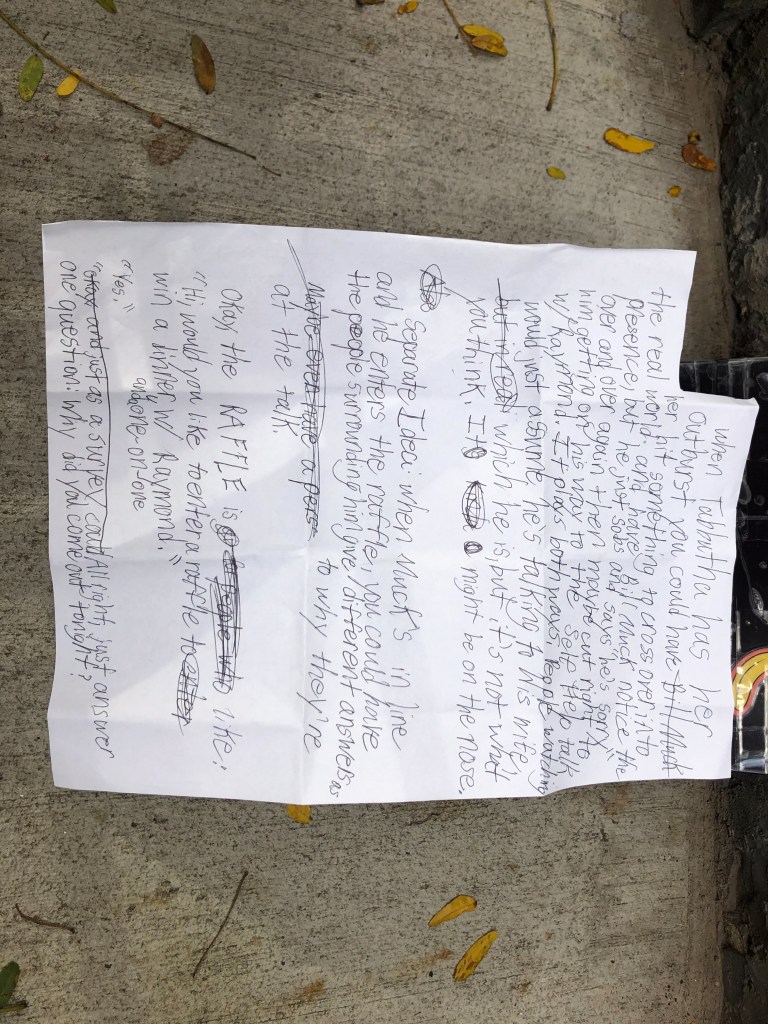 When Tabbutha has her
outburst you could have Bill/Muck
her hit something to cross over in to
the real world and have Bill Muck notice the
presence, but he just sobs and says "he's sorry"
over and over again then maybe cut right to
him getting on his way to the Self Help talk
w/ Raymond. It plays both ways people watching
would just assume he's talking to his wife,
but in fact which he is but it's not what
you think. Its might be on the nose.
Separate Idea: when Muck's in line
and he enters the raffle, you could have
the people surrounding him give different answers as
to why they're
Maybe even have a pers
at the talk.
Okay, the RAFFLE is like:
"Hi, would you like to enter a raffle to enter
win a dinner w/ Raymond."
anyone-on-one
"Yes"
"okay and just as a survey, could All right, just answer
one question: Why did you come out tonight?